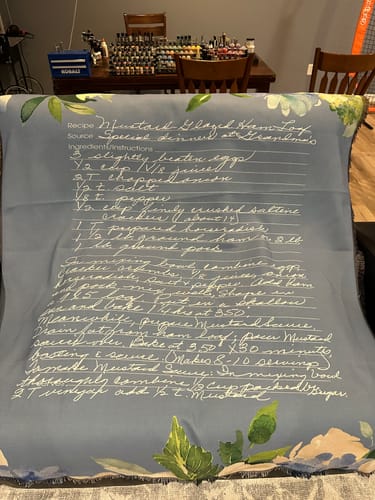 KOBALT
Recipe Mustard Glazed Ham Loaf
Source Special dinners at Grandma's
Ingredients/Instructions
3 slightly beaten eggs
1/2 cup V/8 juice
2 T chopped onion
1/2 t. salt
1/8 t. pepper
1/2 cup finely crushed saltine
crackers (about 14)
1 T prepared horseradish
1 1/2 lb ground ham &
1 lb. ground pork
In mixing bowl, combine eggs,
cracker crumbs, V/8 juice, onion,
horseradish, salt & pepper. Add ham
& pork, mix well. Shape
loaf. Put in a shallow
pan and bake 1 hr at 350.
Meanwhile, prepare Mustard Sauce.
Drain fat from Ham Loaf, pour Mustard
Sauce over. Bake at 350° X 30 minutes,
basting & serve. (Makes 8-10 servings)
make Mustard Sauce: In mixing bowl
thoroughly combine 1/2 cup packed Br Sugar,
2 T vinegar add 1/2 t. Mustard